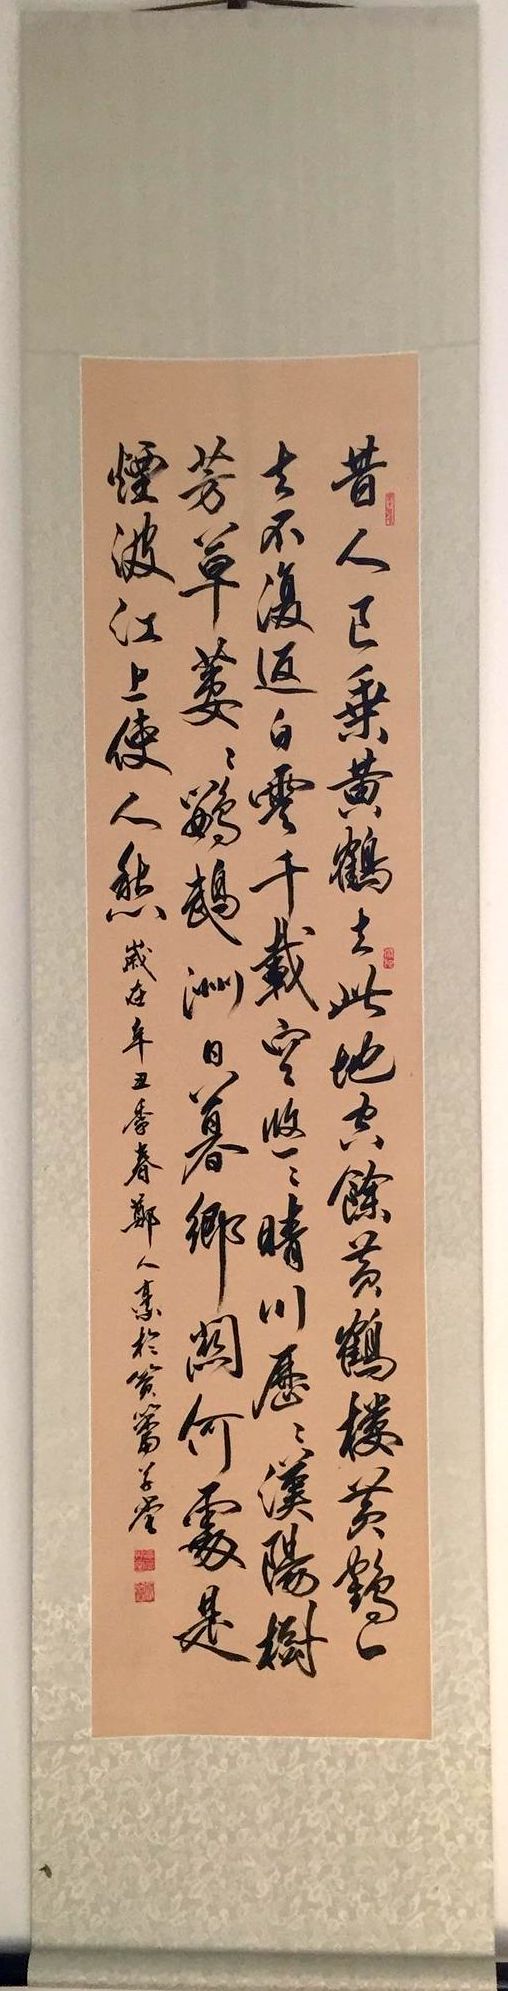 昔人已乗黃鶴去此地空餘黃鶴樓黃鶴一
去不復返白雲千載空悠〻晴川歷〻漢陽樹
芳草萋〻鸚鵡洲日暮鄉關何處是
煙波江上使人愁
歲在辛丑季春鄭人豪於草堂